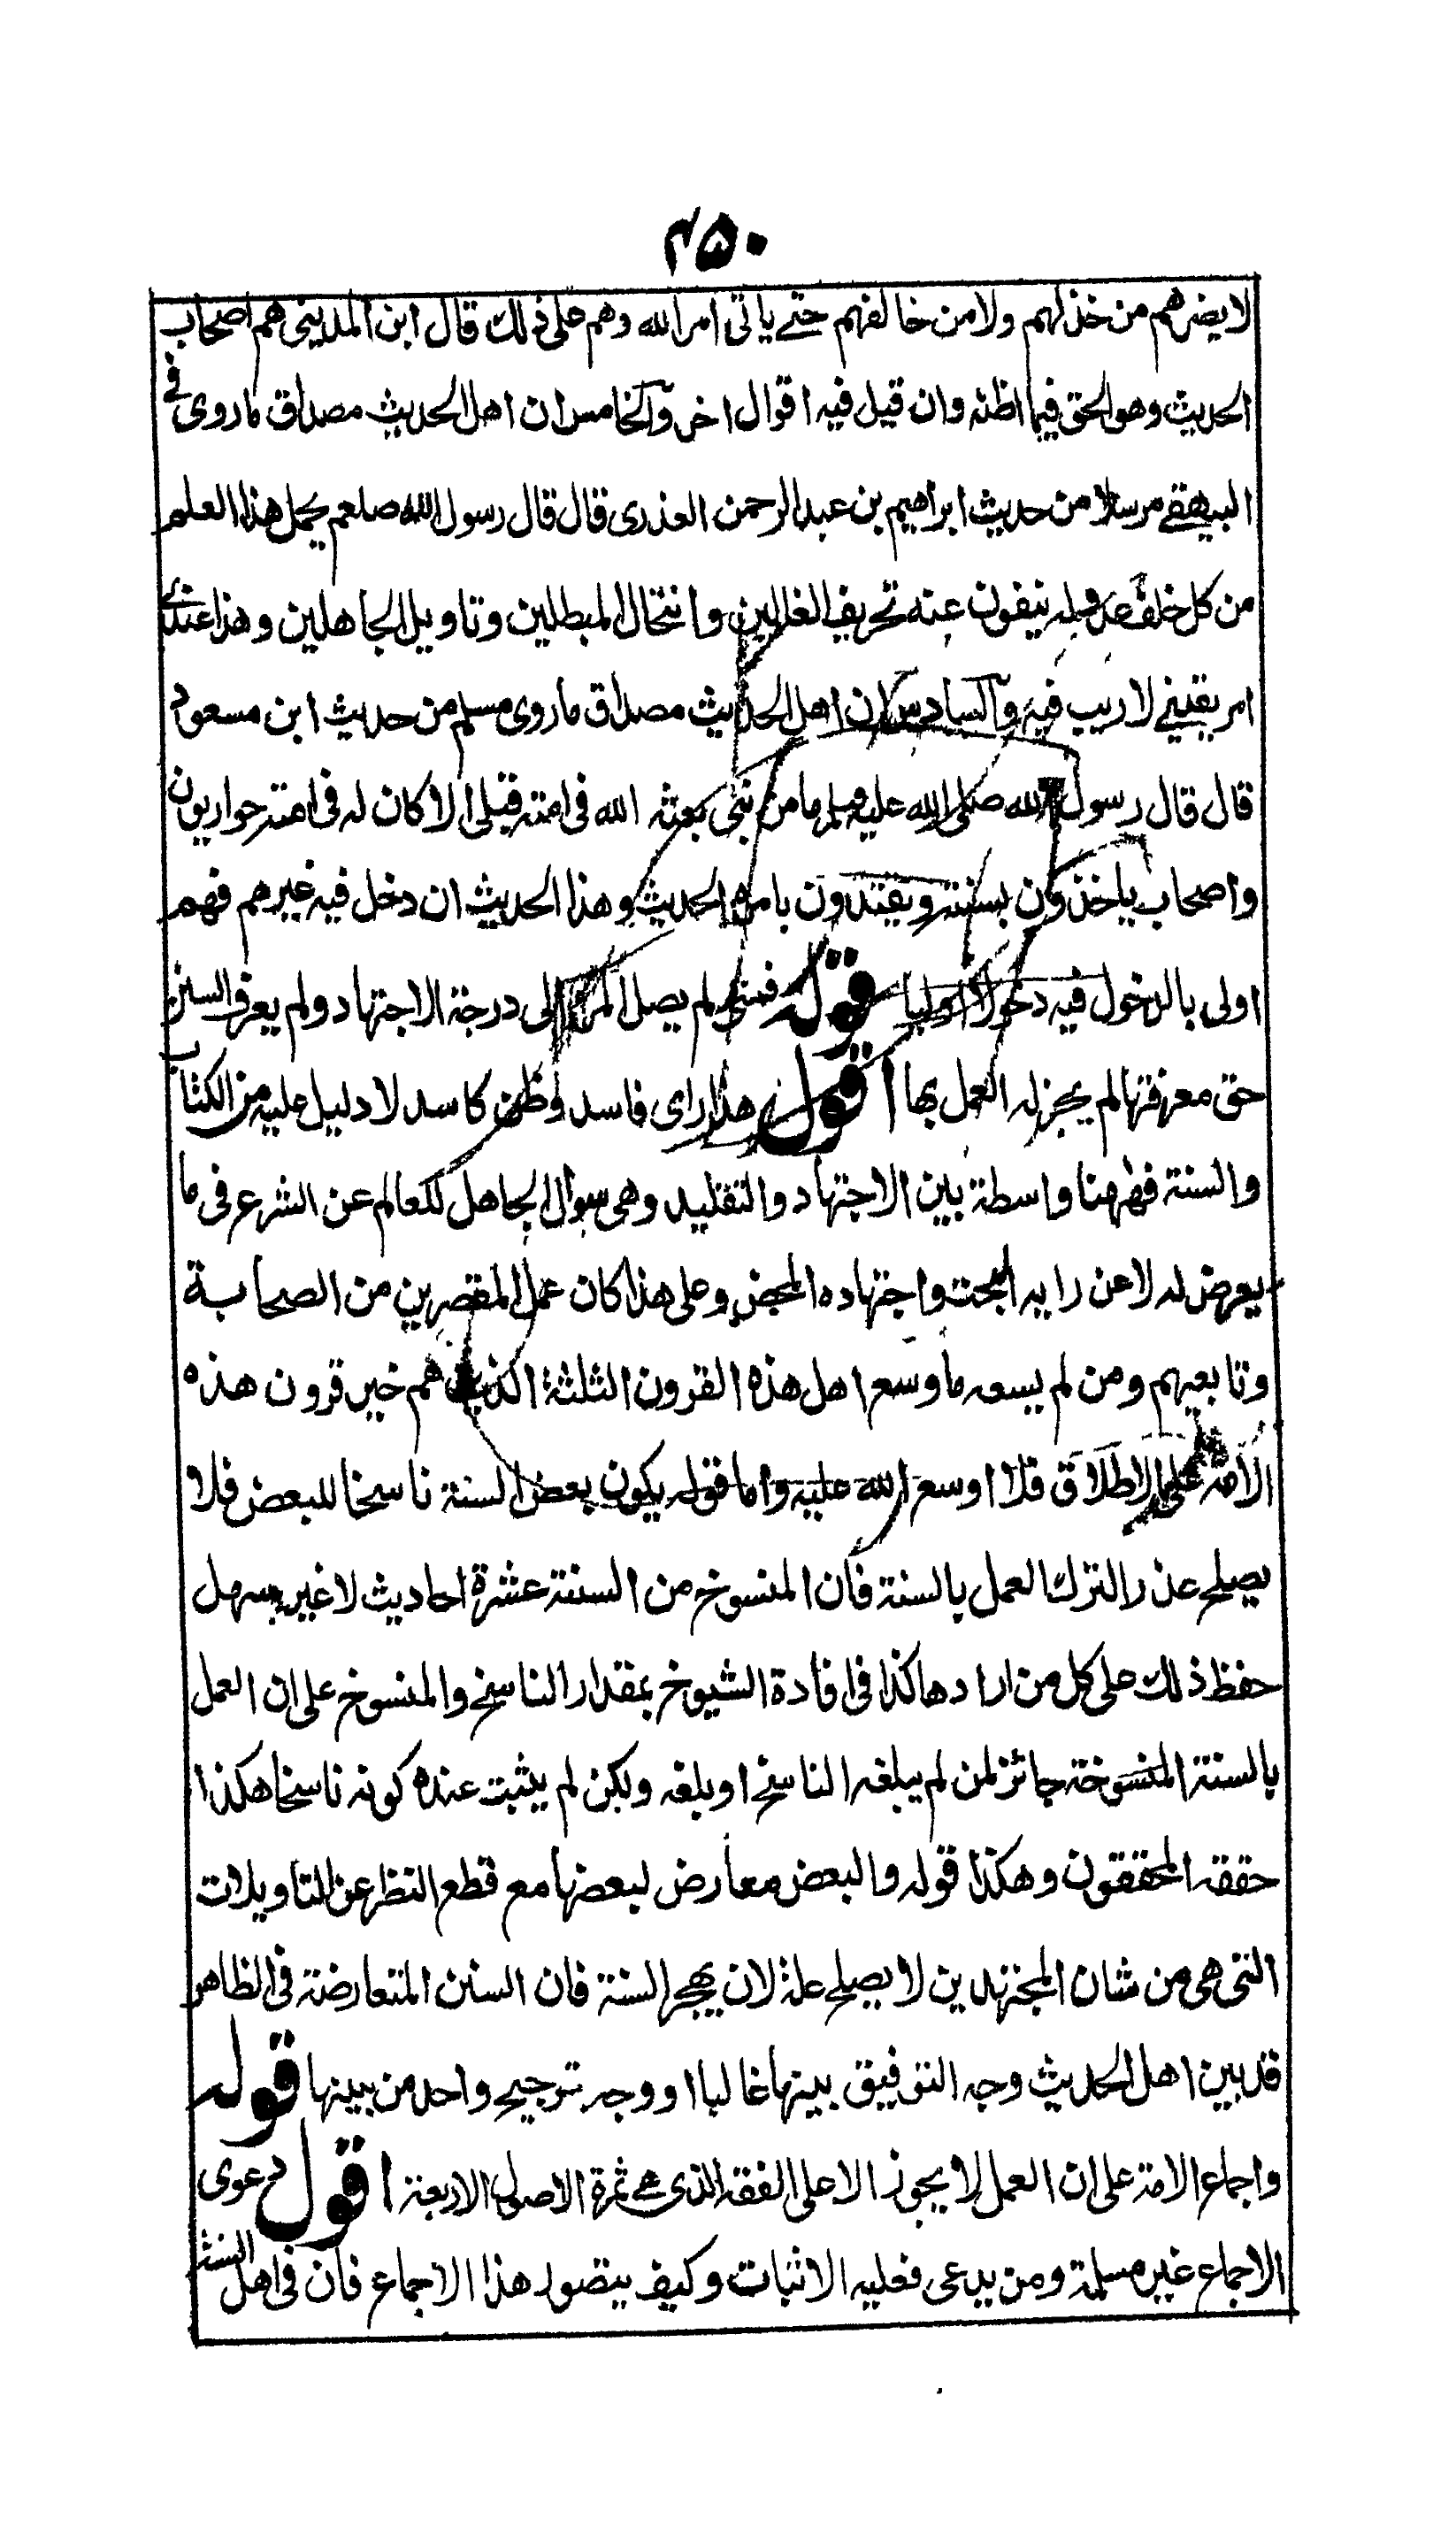 ۴۵۰
لا يضرهم من خذلهم ولا من خالفهم حتے ياتی امر الله وهم علی ذلك قال ابن المدينی هم اصحاب
الحديث وهو الحق فيما اظنه وان قيل فيه اقوال اخر والخامس ان اهل الحديث مصداق ما روی فی
البيهقے مرسلا من حديث ابراهيم بن عبد الرحمن العذری قال قال رسول الله صلعم يحمل هذا العلم
من كل خلف عدوله ينفون عنه تحريف الغالين وانتحال المبطلين وتاويل الجاهلين وهذا عندی
امر يقينے لا ريب فيه والسادس ان اهل الحديث مصداق ما روی مسلم من حديث ابن مسعود
قال قال رسول الله صلی الله عليه وسلم ما من نبی بعثه الله فی امته قبلی الا كان له فی امته حواريون
واصحاب ياخذون بسنته ويقتدون بامره الحديث وهذا الحديث ان دخل فيه غيرهم فهم
اولی بالدخول فيه دخولا اوليا قوله فمتی لم يصل المرء الی درجة الاجتهاد ولم يعرف السنن
حق معرفتها لم يجز له العمل بها اقول هذا رای فاسد وظن كاسد لا دليل عليه من الكتاب
والسنة فههنا واسطة بين الاجتهاد والتقليد وهی سوال الجاهل للعالم عن الشرع فی ما
يعرض له لا عن رايه البحت واجتهاده المحض وعلی هذا كان عمل المقصرين من الصحابة
وتابعيهم ومن لم يسعه ما وسع اهل هذه القرون الثلثة الذين هم خير قرون هذه
الامة علی الاطلاق فلا اوسع الله عليه واما قوله يكون بعض السنة ناسخا للبعض فلا
يصلح عذرا لترك العمل بالسنة فان المنسوخ من السنة عشرة احاديث لا غير يسهل
حفظ ذلك علی كل من ارادها كذا فی افادة الشيوخ بمقدار الناسخ والمنسوخ علی ان العمل
بالسنة المنسوخة جائز لمن لم يبلغه الناسخ او بلغه ولكن لم يثبت عنده كونه ناسخا هكذا
حققه المحققون وهكذا قوله والبعض معارض لبعضها مع قطع النظر عن التاويلات
التی هی من شان المجتهدين لا يصلح علة لان يهجر السنة فان السنن المتعارضة فی الظاهر
قد بين اهل الحديث وجه التوفيق بينها غالبا او وجه ترجيح واحد من بينها قوله
واجماع الامة علی ان العمل لا يجوز الا علی الفقه الذی هے ثمرة الاصول الاربعة اقول دعوی
الاجماع غير مسلمة ومن يدعی فعليه الاثبات وكيف يتصور هذا الاجماع فان فی اهل السنة